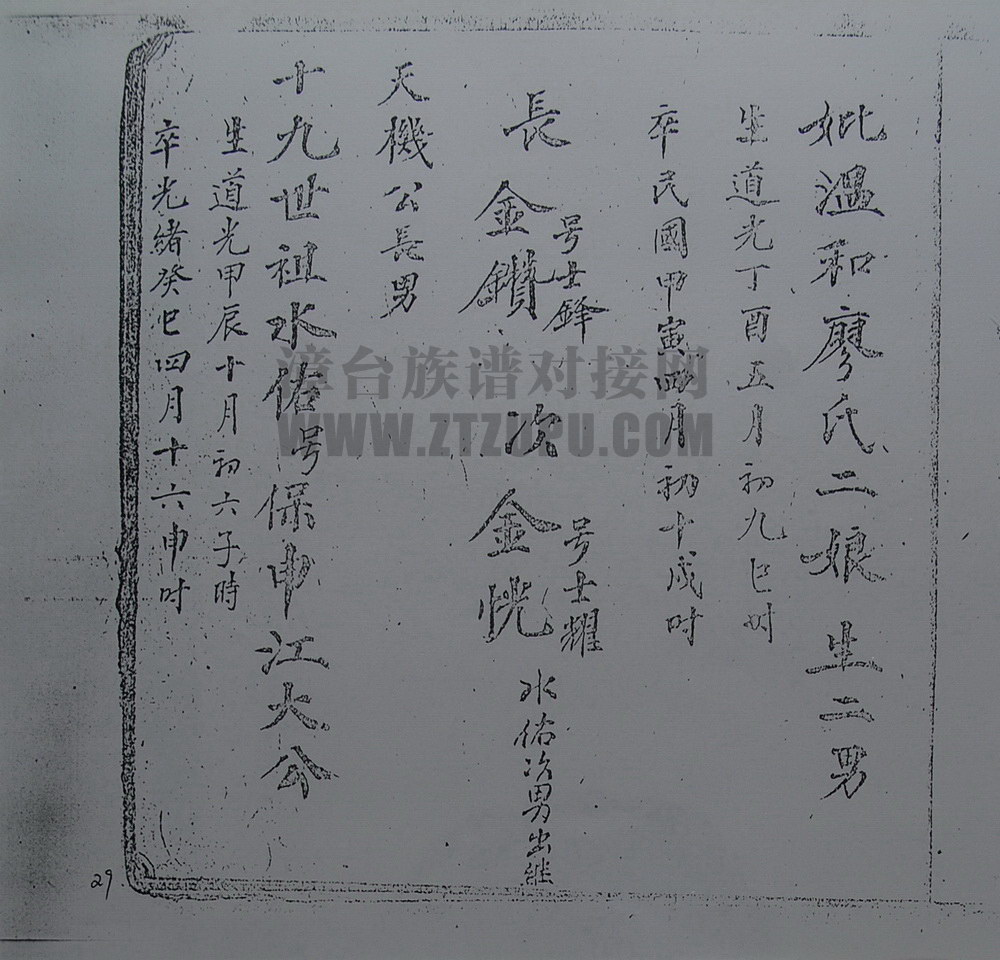 妣溫和廖氏二娘生二男
生道光丁酉五月初九巳时
卒民國甲寅四月初十戌吋
長金鑽号士鋒次金恍号士耀水佑次男出继
天機公長男
十九世祖水佑号保申江大公
生道光甲辰十月初六子時
卒光緒癸巳四月十六申吋
漳台族谱对接网
WWW.ZTZUPU.COM
29